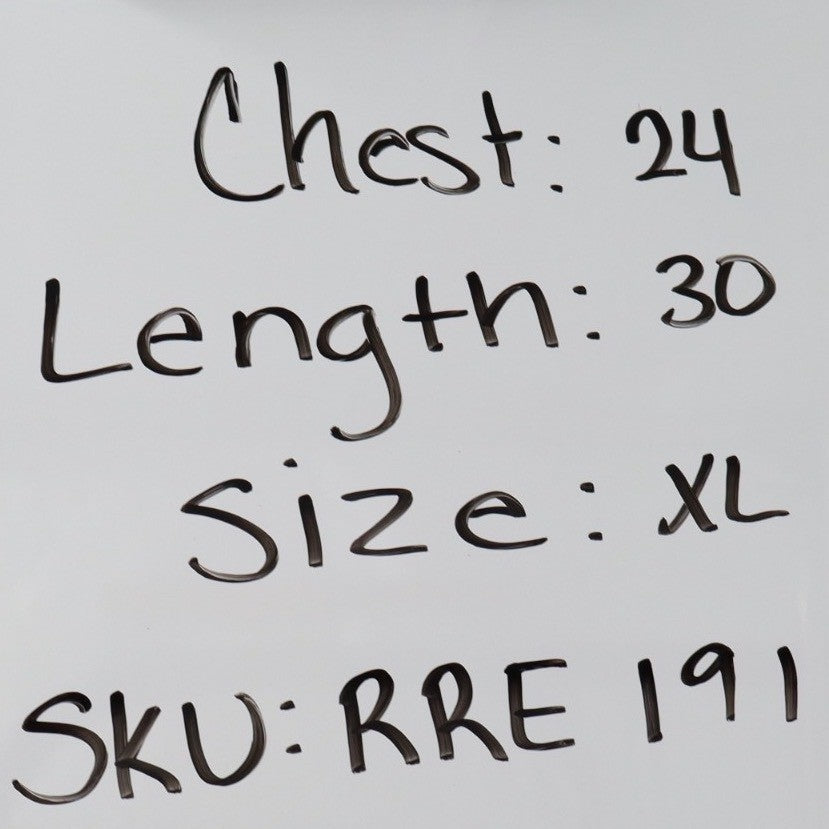 Chest: 24
Length: 30
Size: XL
SKU: RRE 191